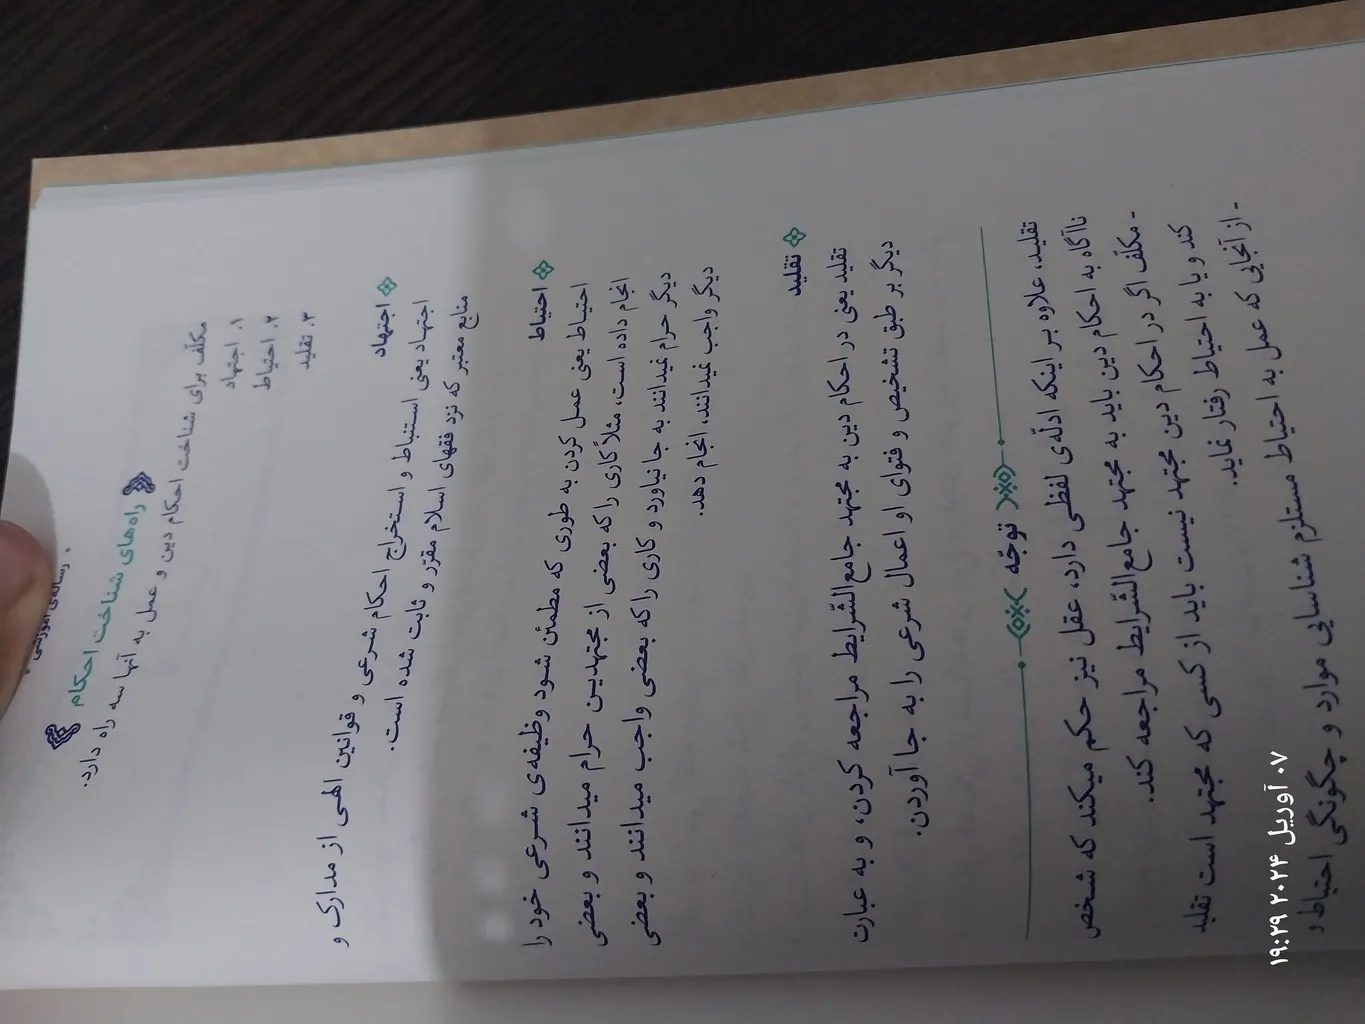 رساله‌ی آموزشی
راه‌های شناخت احکام
مکلّف برای شناخت احکام دین و عمل به آنها سه راه دارد.
۱. اجتهاد
۲. احتیاط
۳. تقلید
اجتهاد
اجتهاد یعنی استنباط و استخراج احکام شرعی و قوانین الهی از مدارک و
منابع معتبر که نزد فقهای اسلام مقرّر و ثابت شده است.
احتیاط
احتیاط یعنی عمل کردن به طوری که مطمئن شود وظیفه‌ی شرعی خود را
انجام داده است، مثلاً کاری را که بعضی از مجتهدین حرام میدانند و بعضی
دیگر حرام نمیدانند به جا نیاورد و کاری را که بعضی واجب میدانند و بعضی
دیگر واجب نمیدانند، انجام دهد.
تقلید
تقلید یعنی در احکام دین به مجتهد جامع‌الشّرایط مراجعه کردن، و به عبارت
دیگر بر طبق تشخیص و فتوای او اعمال شرعی را به جا آوردن.
توجّه
تقلید، علاوه بر اینکه ادلّه‌ی لفظی دارد، عقل نیز حکم میکند که شخص
ناآگاه به احکام دین باید به مجتهد جامع‌الشّرایط مراجعه کند.
- مکلّف اگر در احکام دین مجتهد نیست باید از کسی که مجتهد است تقلید
کند و یا به احتیاط رفتار نماید.
- از آنجایی که عمل به احتیاط مستلزم شناسایی موارد و چگونگی احتیاط و
۰۷ آوریل ۲۰۲۴ ۱۹:۲۹